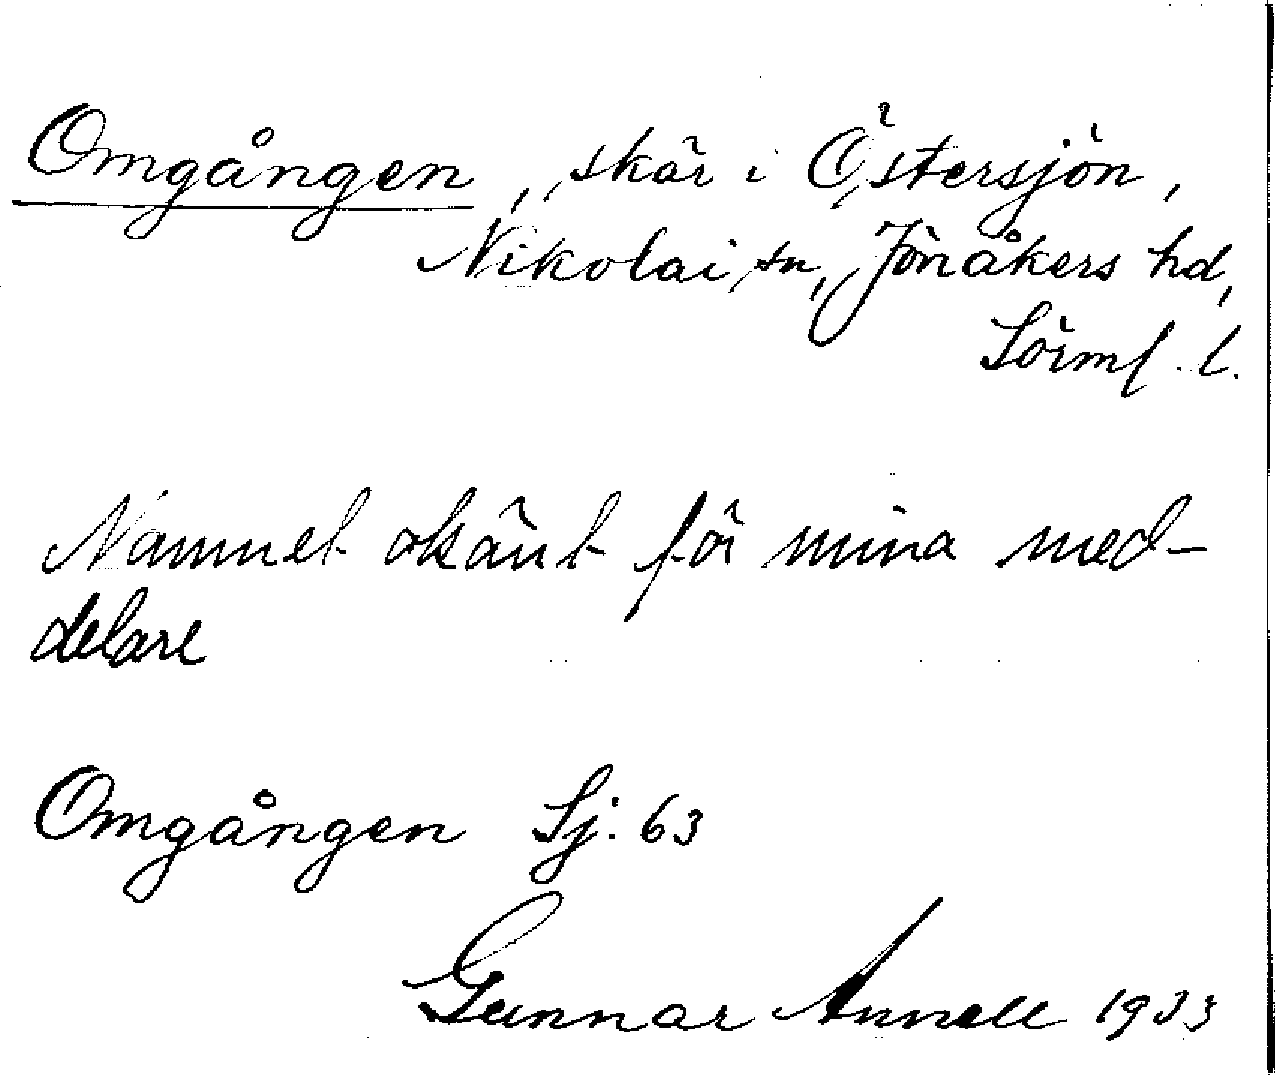 Omgången, skär i Östersjön,
Nikolai sn, Jönåkers hd,
Sörml. l.
Namnet okänt för mina med-
delare
Omgången Sj. 63
Gunnar Annell 1933